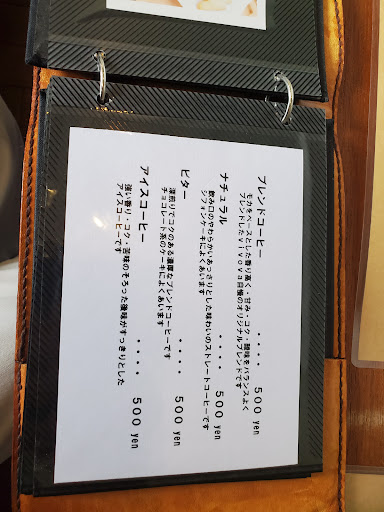 ブレンドコーヒー ・・・・ 500 yen
モカをベースとした香り高く・甘み・コク・酸味をバランスよく
ブレンドしたvivova自慢のオリジナルブレンドです
ナチュラル ・・・・ 500 yen
飲み口のやわらかいあっさりとした味わいのストレートコーヒーです
シフォンケーキによくあいます
ビター ・・・・ 500 yen
深煎りでコクのある濃厚なブレンドコーヒーです
チョコレート系のケーキによくあいます
アイスコーヒー ・・・・ 500 yen
強い香り・コク・苦味のそろった後味がすっきりとした
アイスコーヒーです